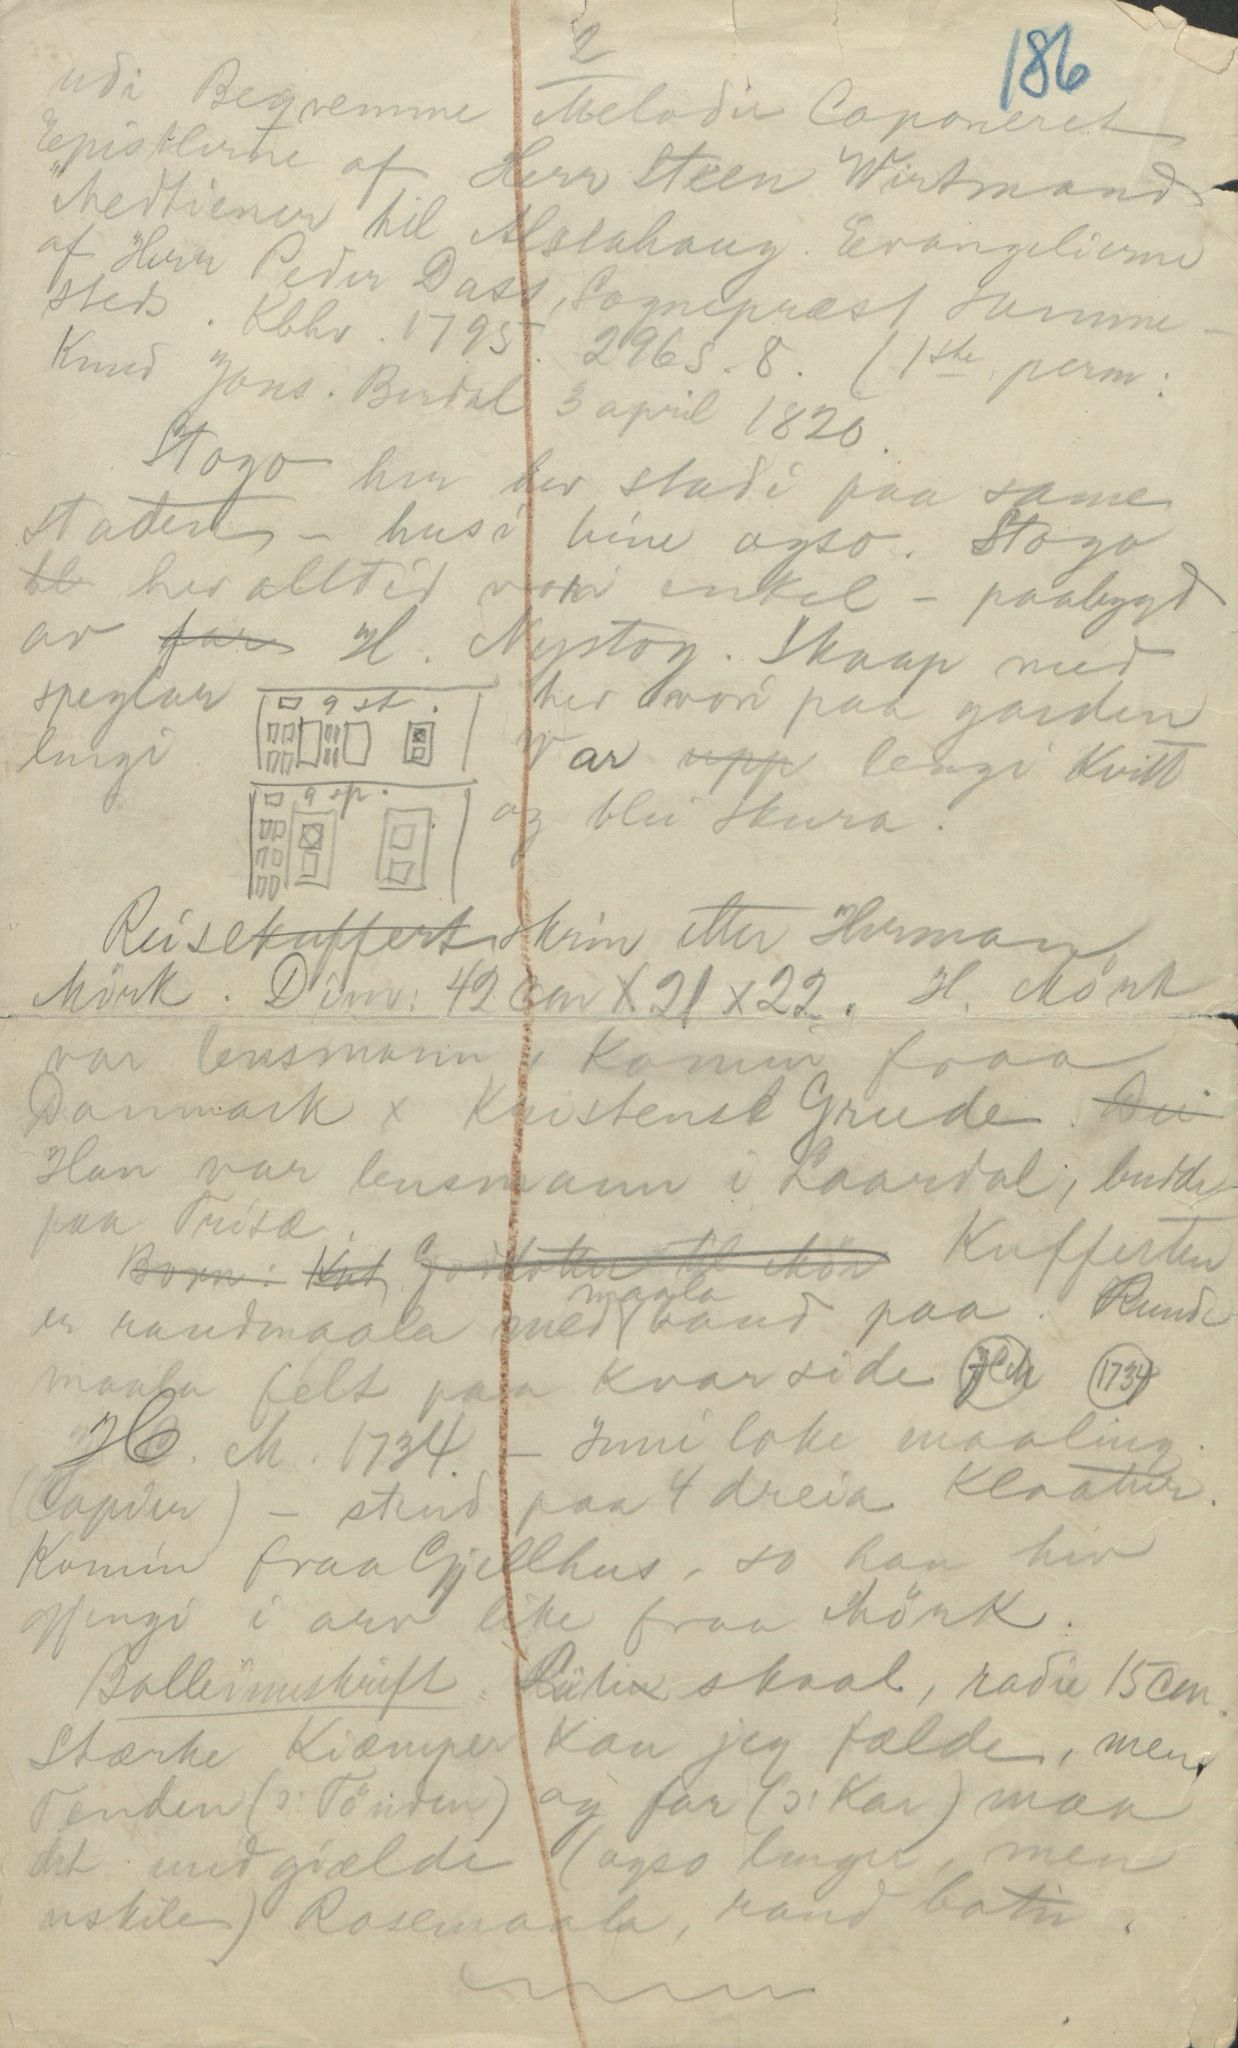 2
186
udi Beqvemme Melodier Caponeret
Epistlerne af Herr Steen Wirtmand
"Medtiener til Alstahaug. Evangelierne
af Herr Peder Dass, Sognepræst samme-
steds. Kbhv. 1795. 296 s. 8. (1ste perm:
Knud Jons. Berdal 3 april 1820.
Stogo her hev stadi paa same
staden - husi hine ogso. Stogo
bl hev alltid vori enkel - paabygd
av far H. Nystog. Skaap med
speglar hev vori paa garden
lengi. Var upp lengi kvitt
og blei skura.
9 st.
9 sp.
Reisekuffert skrin etter Herman
Mörk. Dim: 42 cm x 21 x 22. H. Mörk
var lensmann, komin fraa
Danmark x Kristense Grude. Dei
Han var lensmann i Laardal, budde
paa Trisæ.
Born: Knt Goddotter til Mörk Kufferten
er raudmaala med maala band paa. Runde
maala felt paa kvar side HCM 1734
HC. M. 1734. - Inni loke maaling.
(Copier) - stend paa 4 dreia kloatur.
Komin fraa Gjellhus, so han hev
gjengi i arv like fraa Mörk.
Bolleinnskrift. Liten skaal, radie 15 cm.
Stærke Kiæmper kan jeg fælde, men
Tenden (ɔ: Tönden) og far (ɔ: Kar) maa
det undgiælde (ogso lenger, men
uskile) Rosemaala, raud botn.